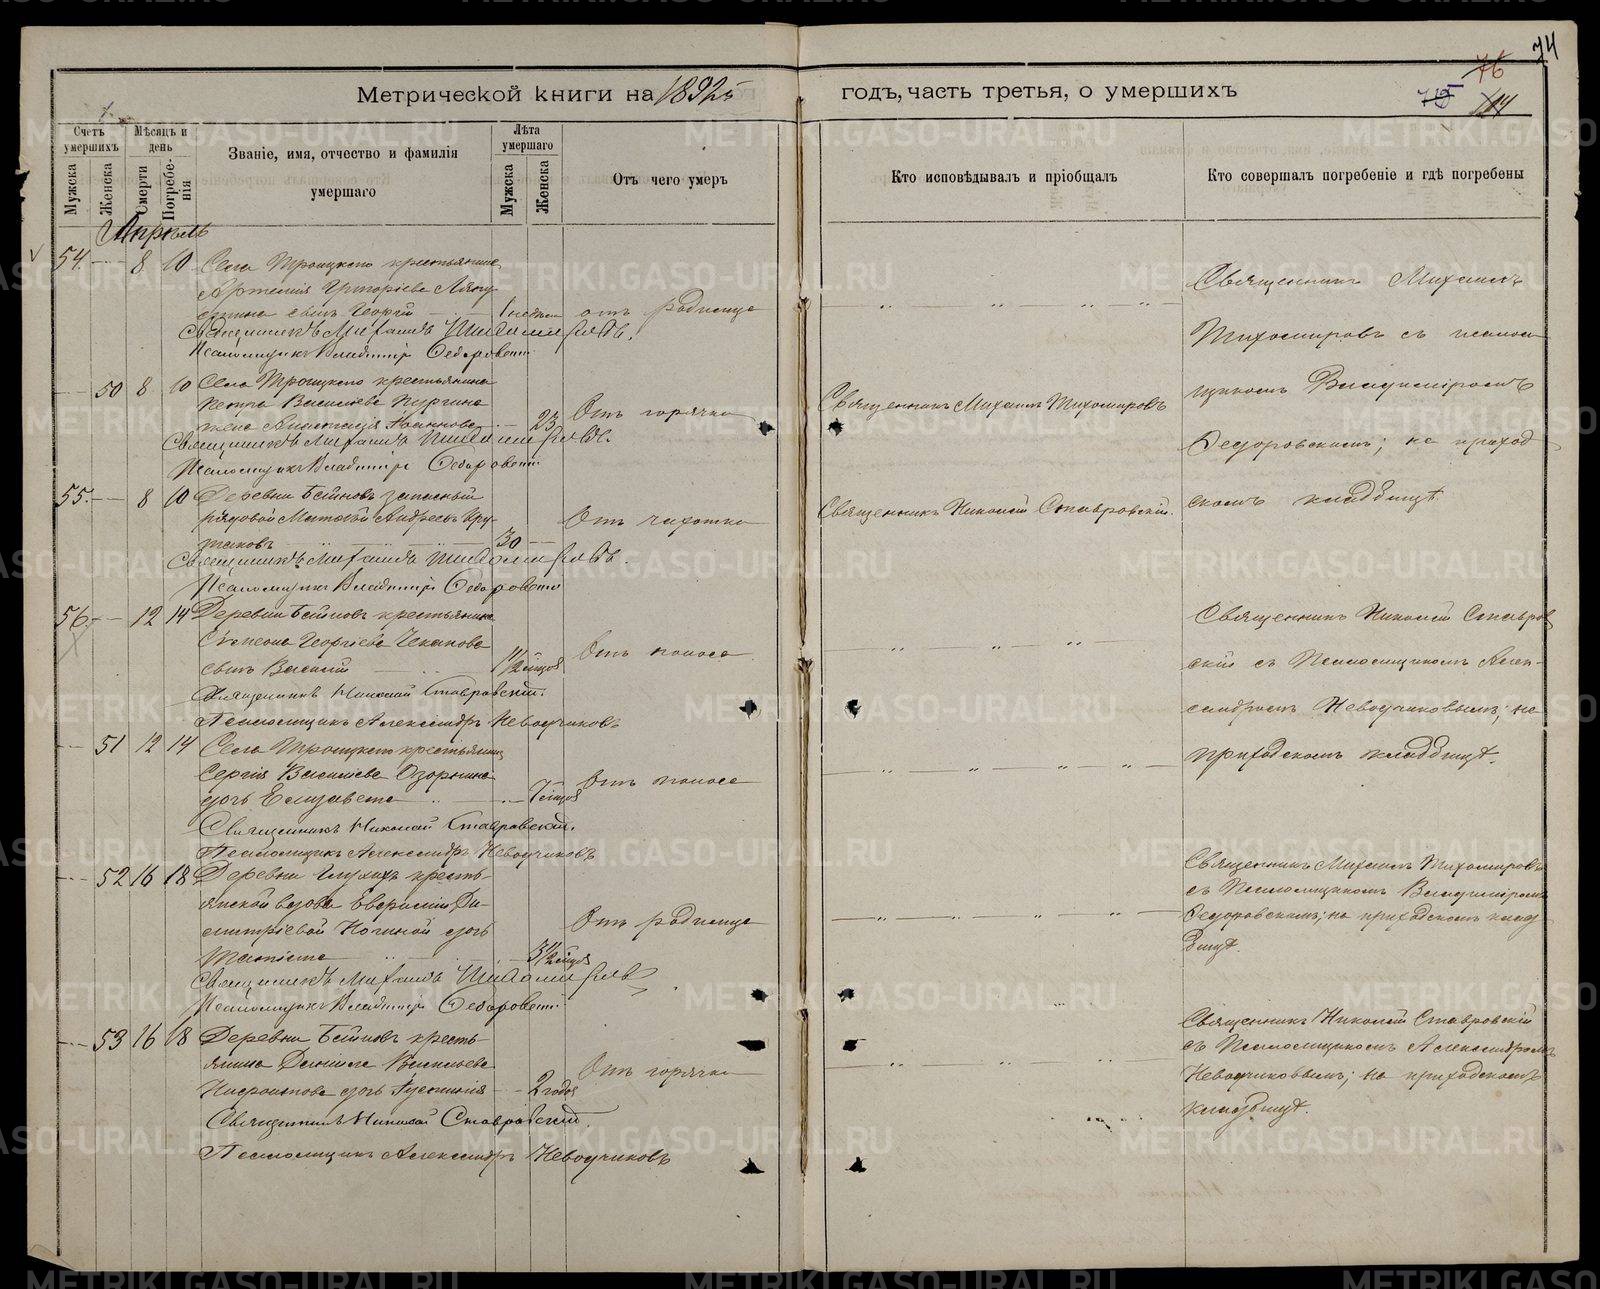 74
76
75
Метрической книги на 1892й
годъ, часть третья, о умершихъ
Счетъ умершихъ
Мѣсяцъ и день
Званіе, имя, отчество и фамилія умершаго
Лѣта умершаго
Отъ чего умеръ
Кто исповѣдывалъ и пріобщалъ
Кто совершалъ погребеніе и гдѣ погребены
Мужска
Женска
Смерти
Погребенія
Мужска
Женска
Апрѣль
54. 8 10 Села Троицкаго крестьянина
Артемія Григорьева
сынъ Георгій от родимца
Священникъ Михаилъ Тихомировъ.
Псаломщикъ Владимір Федоровскій
Священникъ Михаилъ
Тихомировъ съ псалом
щикомъ Владиміромъ
Федоровскимъ; на приход
скомъ кладбищѣ
50 8 10 Села Троицкаго крестьянина
Петра Васильева Кургина
жена Анастасія Іванова 23 Отъ горячки Священникъ Михаилъ Тихомировъ
Священникъ Михаилъ Тихомировъ.
Псаломщикъ Владимір Федоровскій
55. 8 10 Деревни запасный
рядовой Андреевъ
30 Отъ чахотки Священникъ Николай Ставровскій.
Священникъ Михаилъ Тихомировъ.
Псаломщикъ Владимір Федоровскій
56. 12 14 Деревни крестьянина
Симеона Георгіева Чеканова
сынъ Василій 1 1/2 мѣцов Отъ поноса
Священникъ Николай Ставровскій.
Псаломщикъ Александръ Неводчиковъ
Священникъ Николай Ставров
скій съ Псаломщикомъ Алек-
сандромъ Неводчиковымъ; на
приходскомъ кладбищѣ.
51 12 14 Села Троицкаго крестьянина
Сергія Васильева Озорнина
дочь Елизавета 7 мѣцов Отъ поноса
Священникъ Николай Ставровскій.
Псаломщикъ Александръ Неводчиковъ
52 16 18 Деревни Глухихъ кресть-
янской вдовы Евфиміи Ди-
митріевой Ногиной дочь
3 1/2 мѣцов Отъ родимца
Священникъ Михаилъ Тихомиров
Псаломщикъ Владимір Федоровскій
Священникъ Михаилъ Тихомировъ
съ Псаломщикомъ Владиміромъ
Федоровскимъ; на приходскомъ клад
бищѣ.
53 16 18 Деревни кресть-
янина Даніила Васильева
дочь 2 года Отъ горячки
Священникъ Николай Ставровскій.
Псаломщикъ Александръ Неводчиковъ
Священникъ Николай Ставровскій
съ Псаломщикомъ Александромъ
Неводчиковымъ; на приходскомъ
кладбищѣ.
METRIKI.GASO-URAL.RU